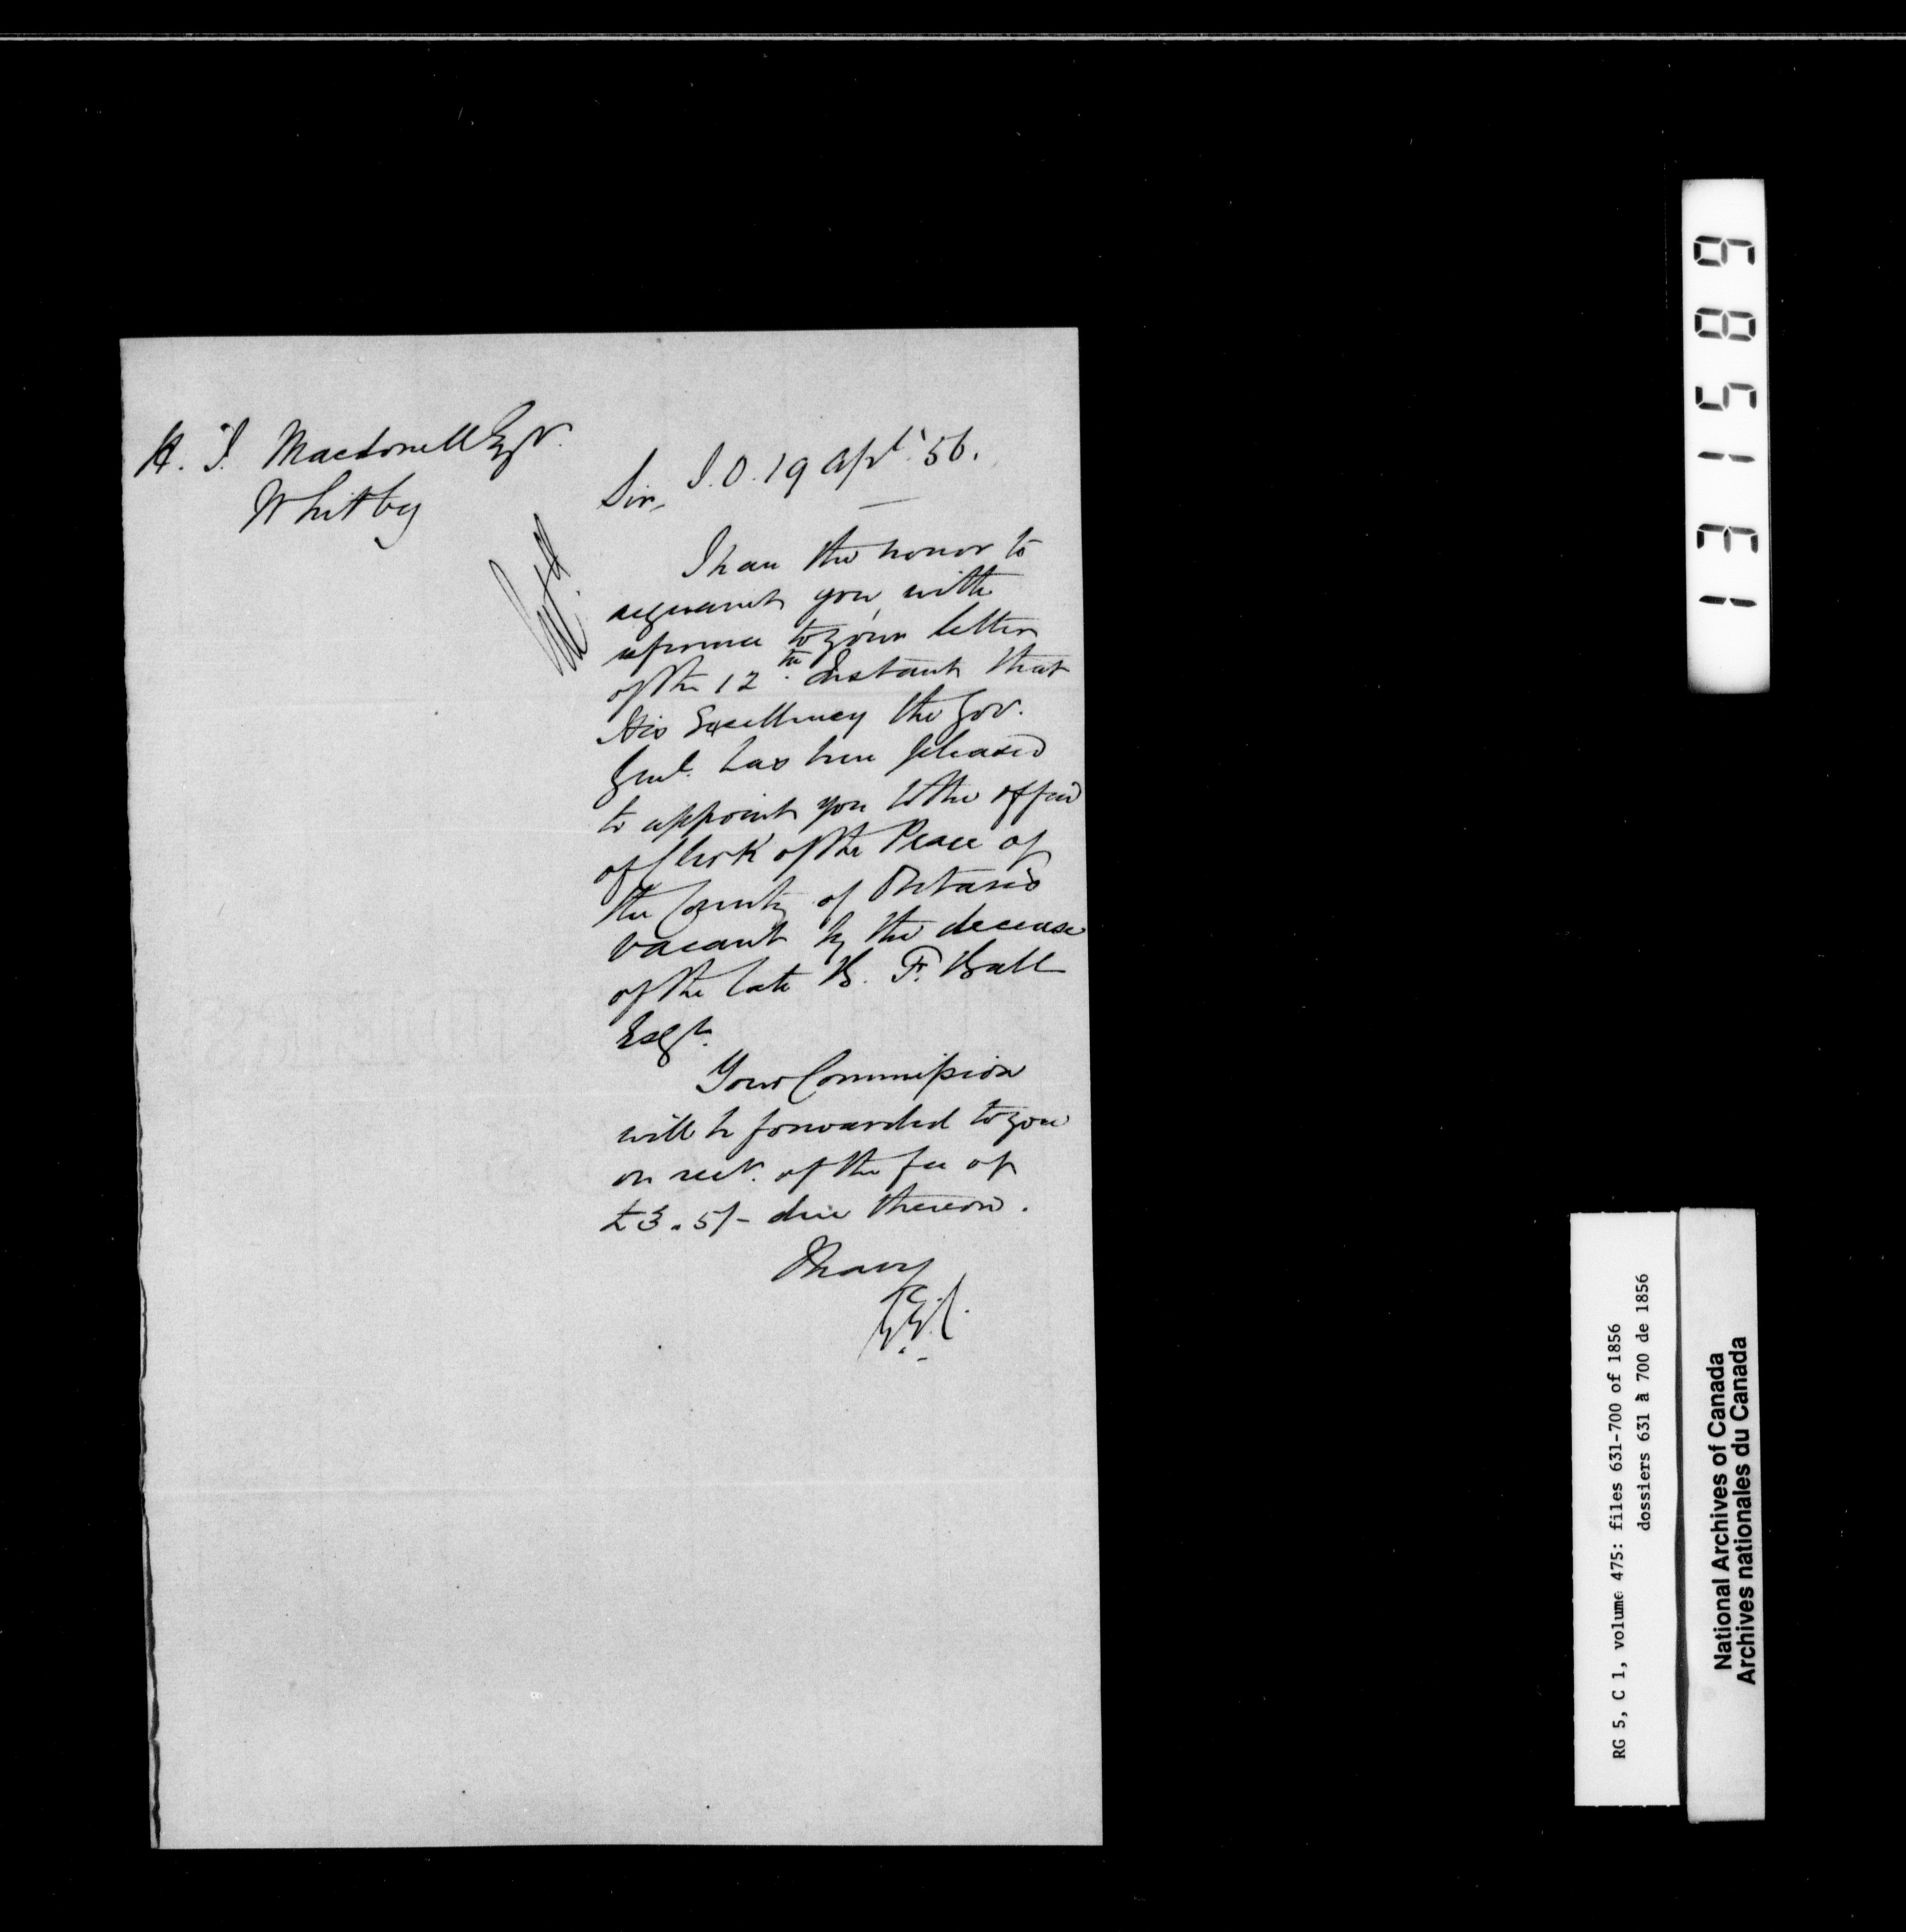 H. J. Macdonell Esqr.
Whitby
S.O. 19 Apl. '56.
Sir,
I have the honor to
acquaint you, with
reference to your letter
of the 12th. Instant that
His Excellency the Gov.
Genl. has been pleased
to appoint you to the office
of Clerk of the Peace of
the County of Ontario
vacant by the decease
of the late B. F. Ball
Esqr.
Your Commission
will be forwarded to you
on rect. of the fee of
£3.5/- due thereon.
131589
RG 5, C 1, volume 475: files 631-700 of 1856
dossiers 631 à 700 de 1856
National Archives of Canada
Archives nationales du Canada